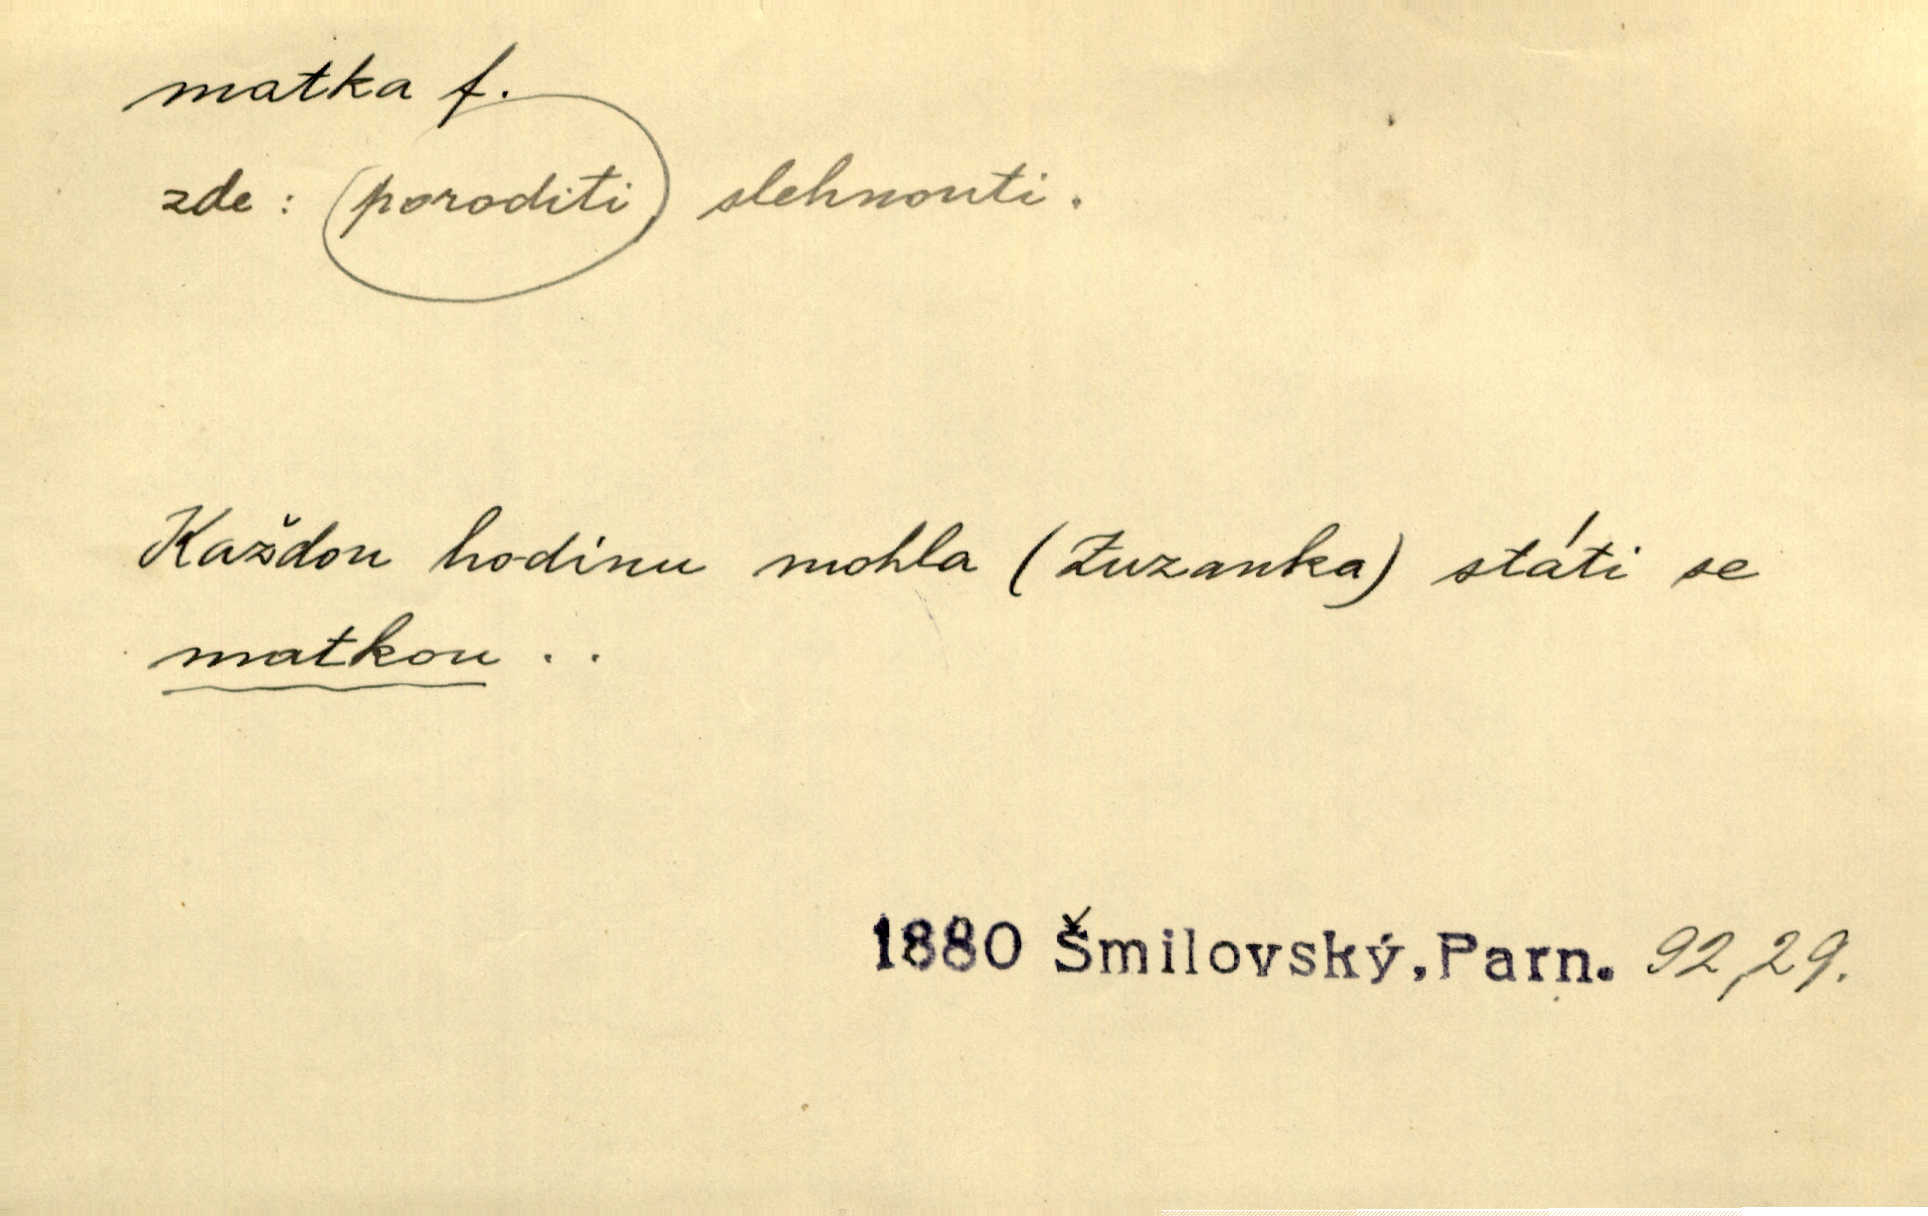 matka f.
zde: (poroditi) slehnouti.
Každou hodinu mohla (Zuzanka) státi se
matkou ..
1880 Šmilovský, Parn. 92,29.